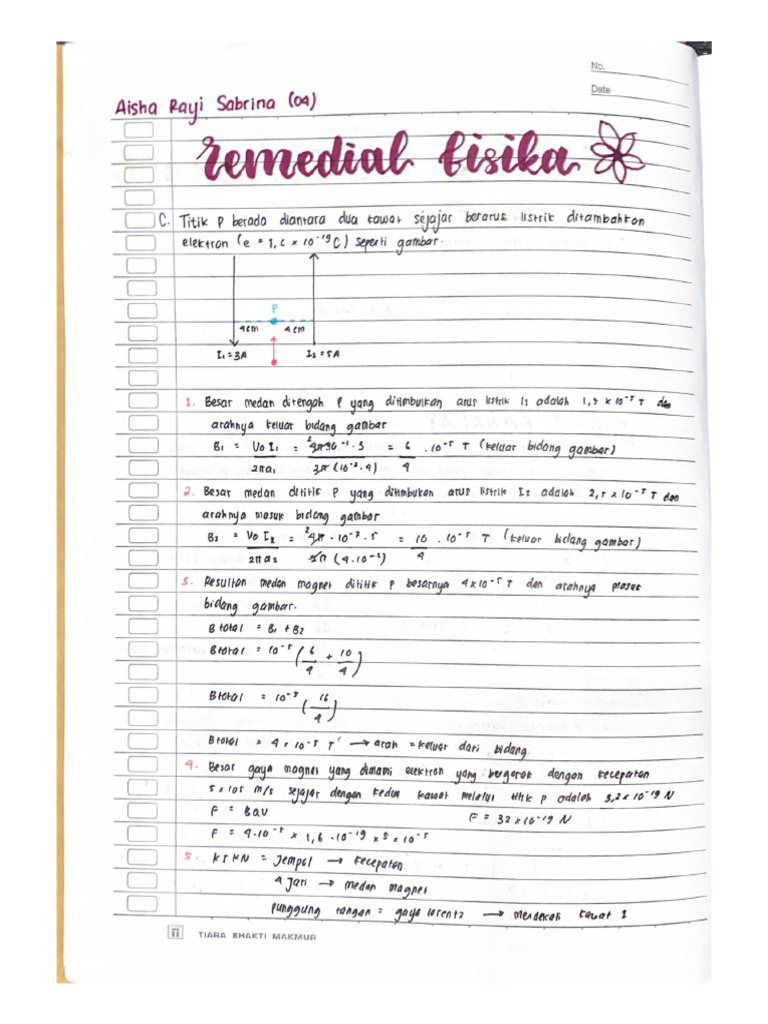 No.
Date
Aisha Rayi Sabrina (04)
remedial fisika
C. Titik P berada diantara dua kawat sejajar berarus listrik ditambahkan
elektron (e = 1,6 × 10⁻¹⁹ C) seperti gambar.
P
4cm 4cm
I₁ = 3A I₂ = 5A
1. Besar medan ditengah P yang ditimbulkan arus listrik I₁ adalah 1,5 × 10⁻⁵ T dan
arahnya keluar bidang gambar
B₁ = Uo I₁ = ²4π·10⁻⁷·3 = 6 . 10⁻⁵ T (keluar bidang gambar)
2πa₁ 2π (10⁻²·4) 4
2. Besar medan dititik P yang ditimbulkan arus listrik I₂ adalah 2,5 × 10⁻⁵ T dan
arahnya masuk bidang gambar
B₂ = Uo I₂ = ²4π · 10⁻⁷ · 5 = 10 . 10⁻⁵ T (keluar bidang gambar)
2πa₂ 2π (4.10⁻²) 4
3. Resultan medan magnet dititik P besarnya 4×10⁻⁵ T dan arahnya masuk
bidang gambar.
B total = B₁ + B₂
B total = 10⁻⁵ (6/4 + 10/4)
B total = 10⁻⁵ (16/4)
B total = 4 × 10⁻⁵ T → arah = keluar dari bidang
4. Besar gaya magnet yang dialami elektron yang bergerak dengan kecepatan
5 × 105 m/s sejajar dengan kedua kawat melalui titik P adalah 3,2 × 10⁻¹⁹ N
F = BQV F = 32 × 10⁻¹⁹ N
F = 4·10⁻⁵ × 1,6 · 10⁻¹⁹ × 5 × 10⁻⁵
5. KTKN = Jempol → kecepatan
4 Jari → medan magnet
punggung tangan = gaya lorentz → mendekati kawat 1
TIARA BHAKTI MAKMUR